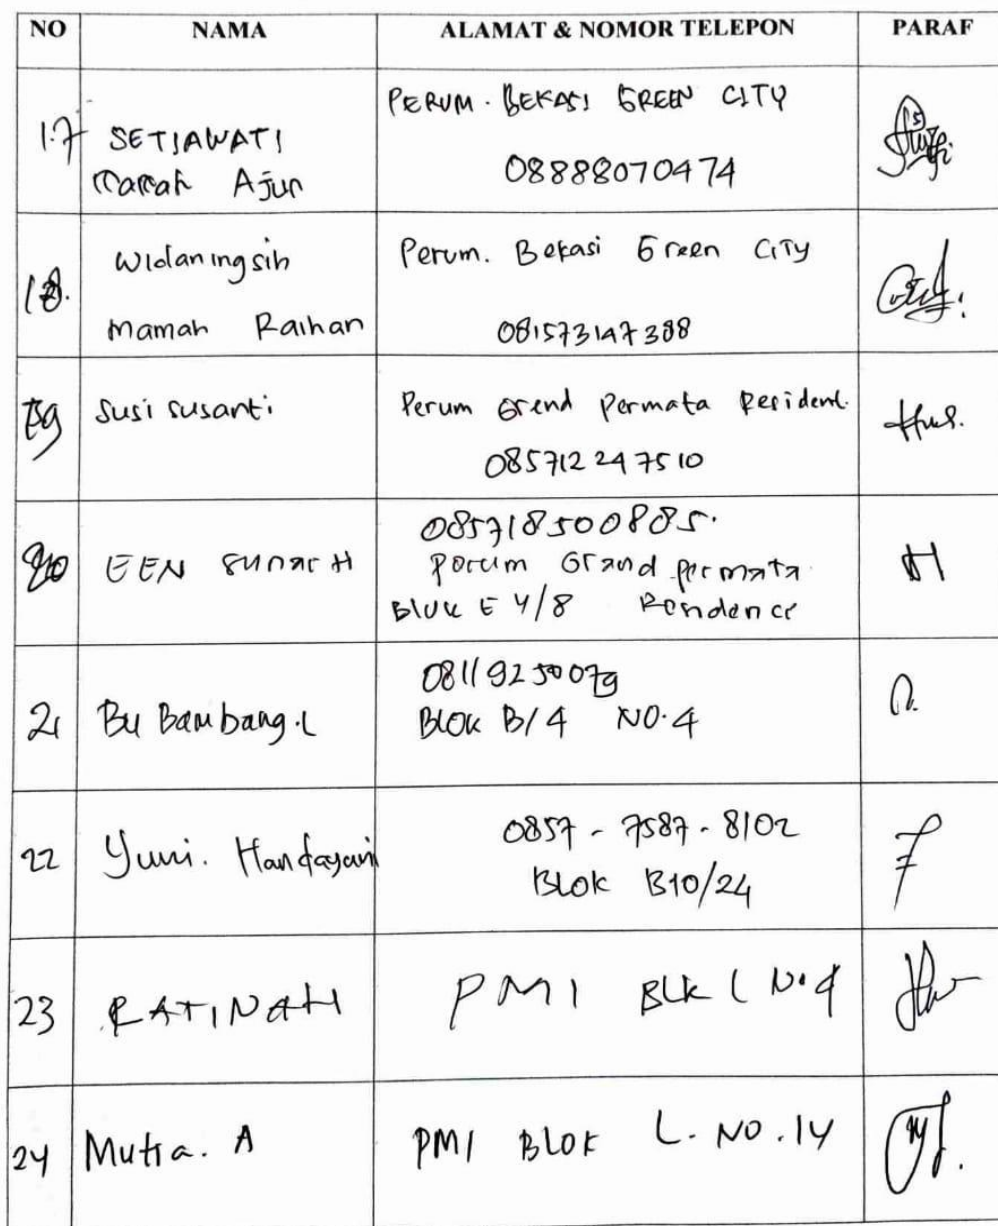 NO NAMA ALAMAT & NOMOR TELEPON PARAF
17 SETIAWATI PERUM. BEKASI GREEN CITY
Mamah Ajun 08888070474
18. Widaningsih Perum. Bekasi Green City
Mamah Raihan 081573147388
19 Susi Susanti Perum Grend Permata Resident.
085712247510
20 EEN SUNARH 085718500885.
Perum Grand permata
Blok E 4/8 Residence
21 Bu Bambang.L 08119250079
Blok B/4 NO.4
22 Yuni. Handayani 0857-7587-8102
Blok B10/24
23 RATINAH PMI Blk L No.4
24 Mutia. A PMI BLOK L. NO.14